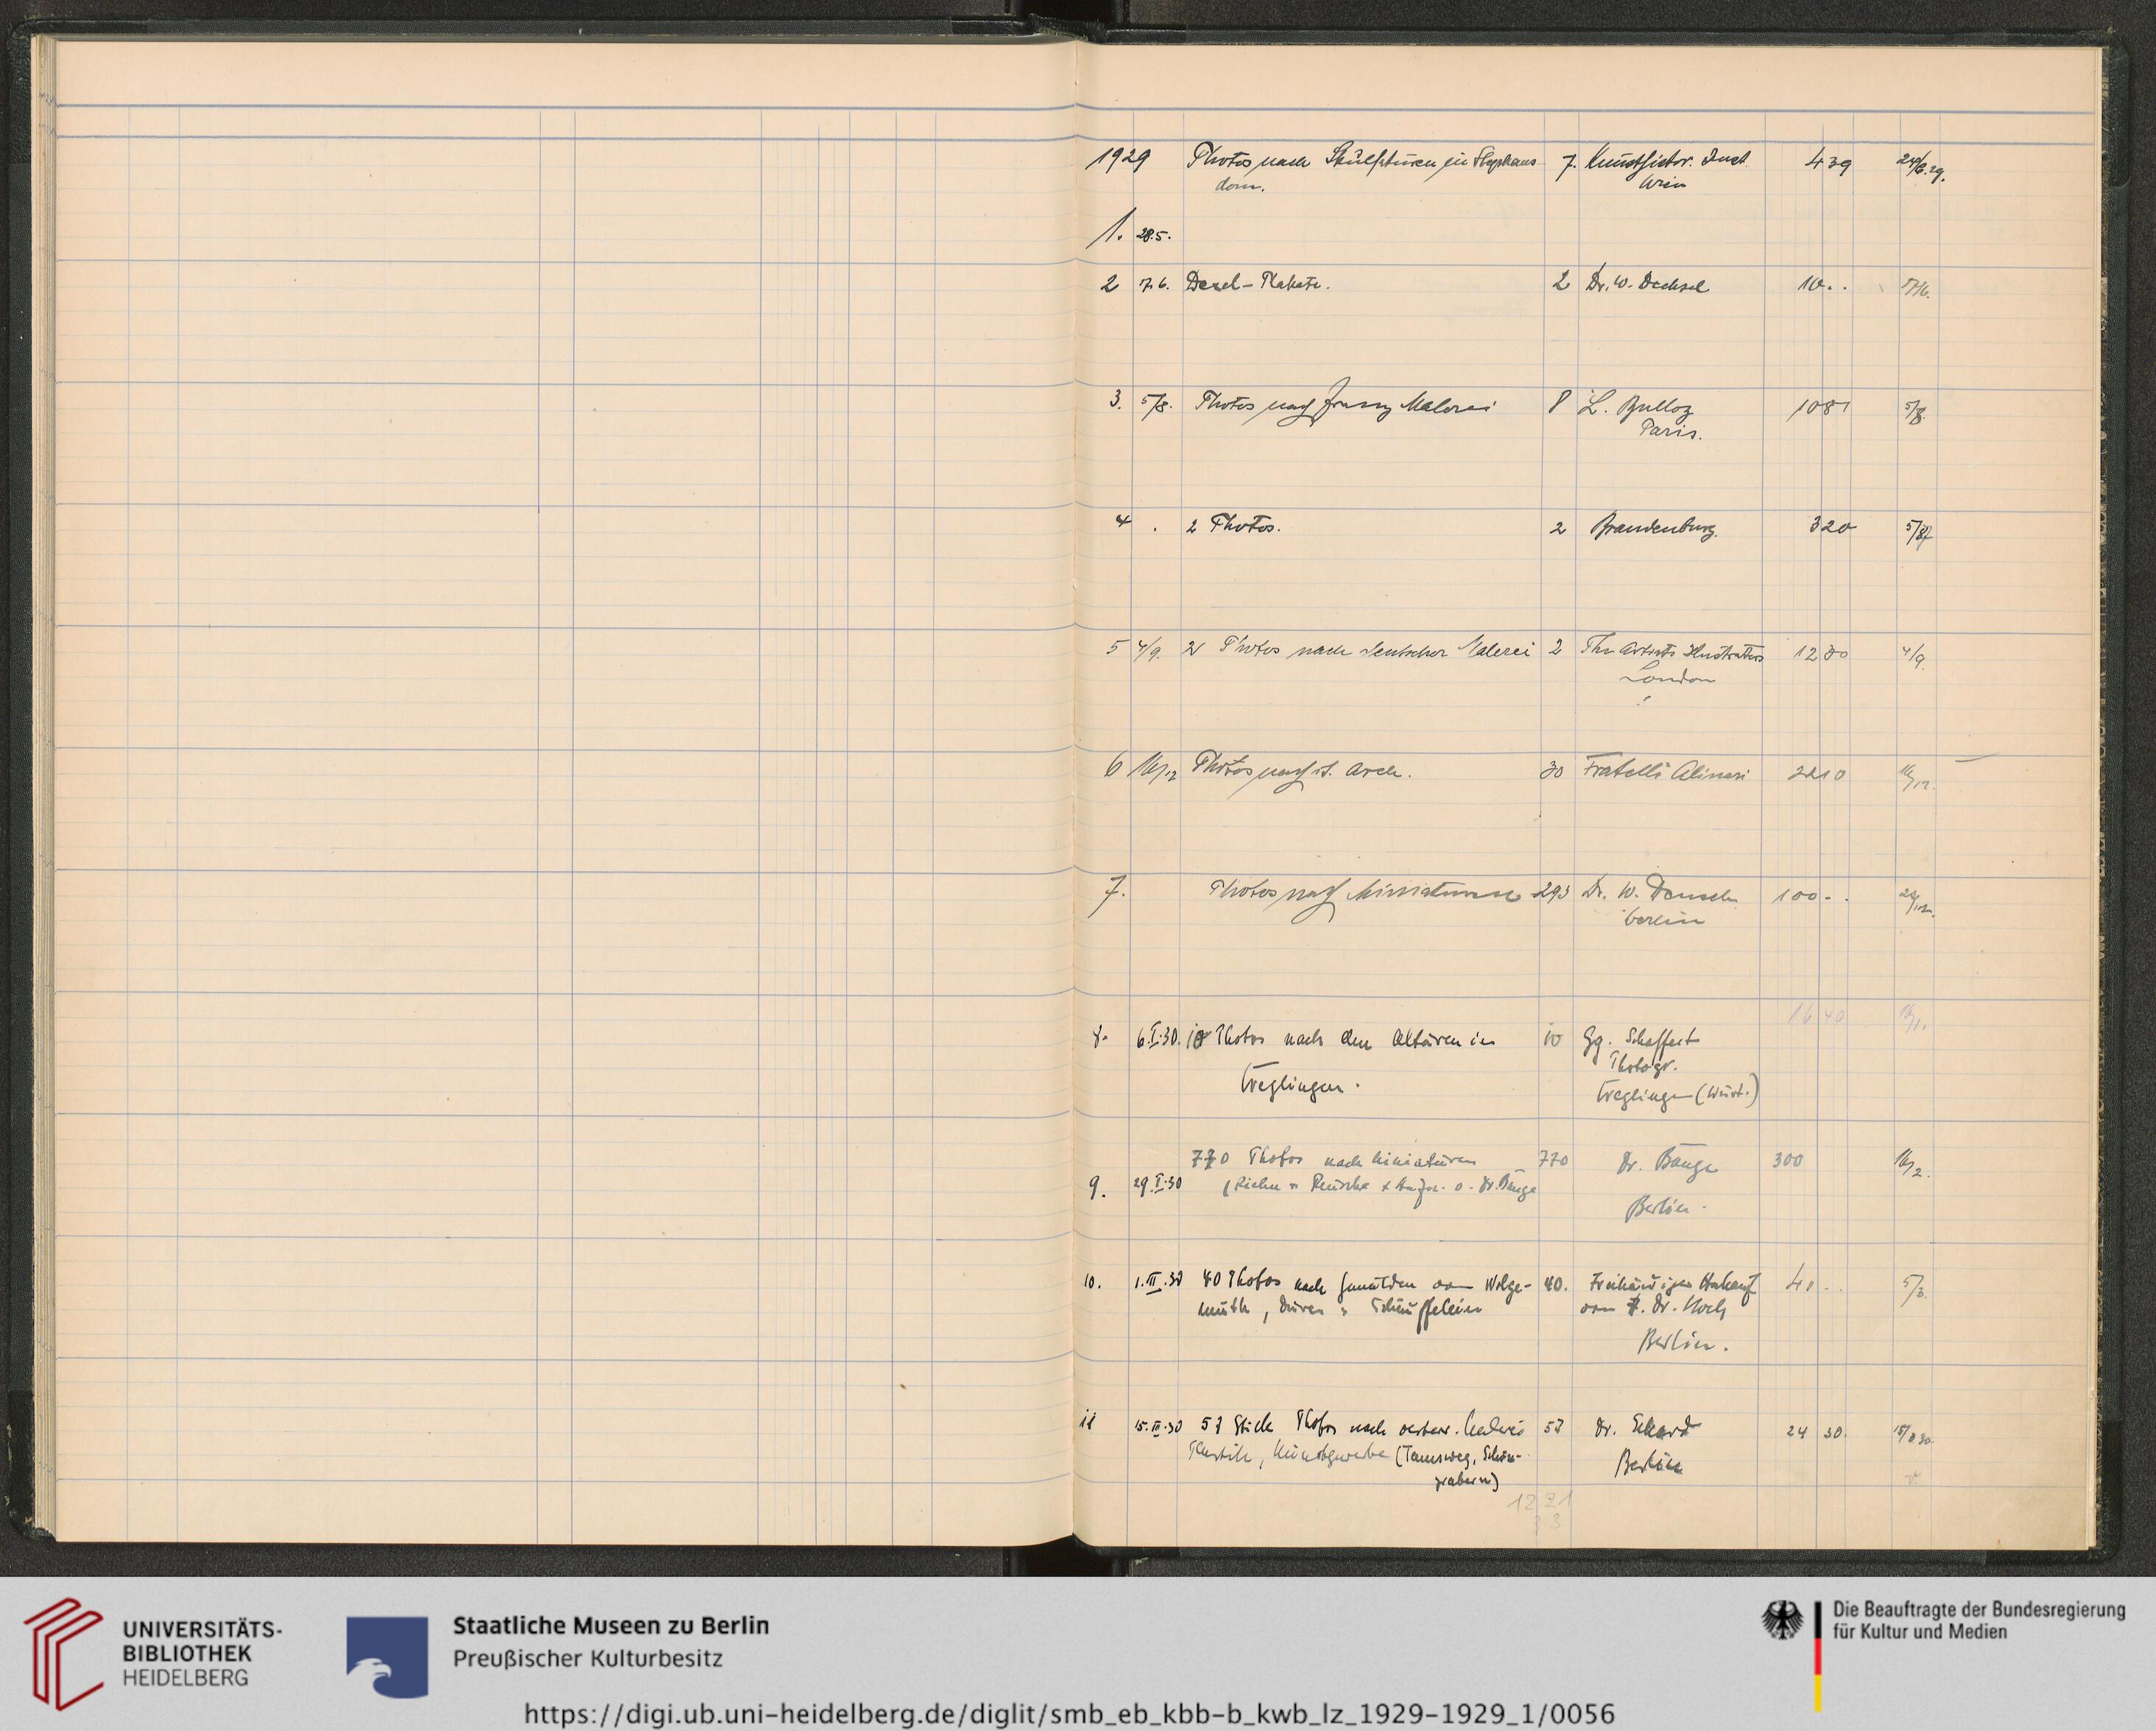 1929 Photos nach Skulpturen im Stephans- 7. Kunsthistor. Inst. 439 24/6.29.
dom. Wien
1. 28.5.
2 7.6. Dexel-Plakate. 2 Dr. W. Dechsel 10.. 7/6.
3. 5/8. Photos nach franz Malerei 8 L. Bulloz 1081 5/8.
Paris.
4 . 2 Photos. 2 Brandenburg. 320 5/8
5 4/9. 2 Photos nach deutscher Malerei 2 The Artists Illustrators 1280 4/9.
London
6 16/12 Photos nach it. Arch. 30 Fratelli Alinari 2210 16/12.
7. Photos nach Miniaturen 293 Dr. W. 100-.
Berlin
1640 16/1.
8. 6.I.30. 10 Photos nach den Altären in 10 Gg. Schaffert
Photogr.
Creglingen. Creglingen (Würt.)
770 Photos nach Miniaturen 770 Dr. Bange 300 16/2.
9. 29.I.30 Dr. Bange
Berlin.
10. 1.III.30 40 Photos nach Gemälden von Wolge- 40. Freihändiger Ankauf 40.. 5/3.
muth, Dürer u Schäuffelein von Dr. Koch
Berlin.
11 15.III.30 57 Stück Photos nach oesterr. Malerei 57 Dr. Eckard 24 30. 15/3 30
Plastik, Kunstgewerbe (Tamsweg, Schön- Berlin
grabern)
1221
33
UNIVERSITÄTS-
BIBLIOTHEK
HEIDELBERG
Staatliche Museen zu Berlin
Preußischer Kulturbesitz
Die Beauftragte der Bundesregierung
für Kultur und Medien
https://digi.ub.uni-heidelberg.de/diglit/smb_eb_kbb-b_kwb_lz_1929-1929_1/0056